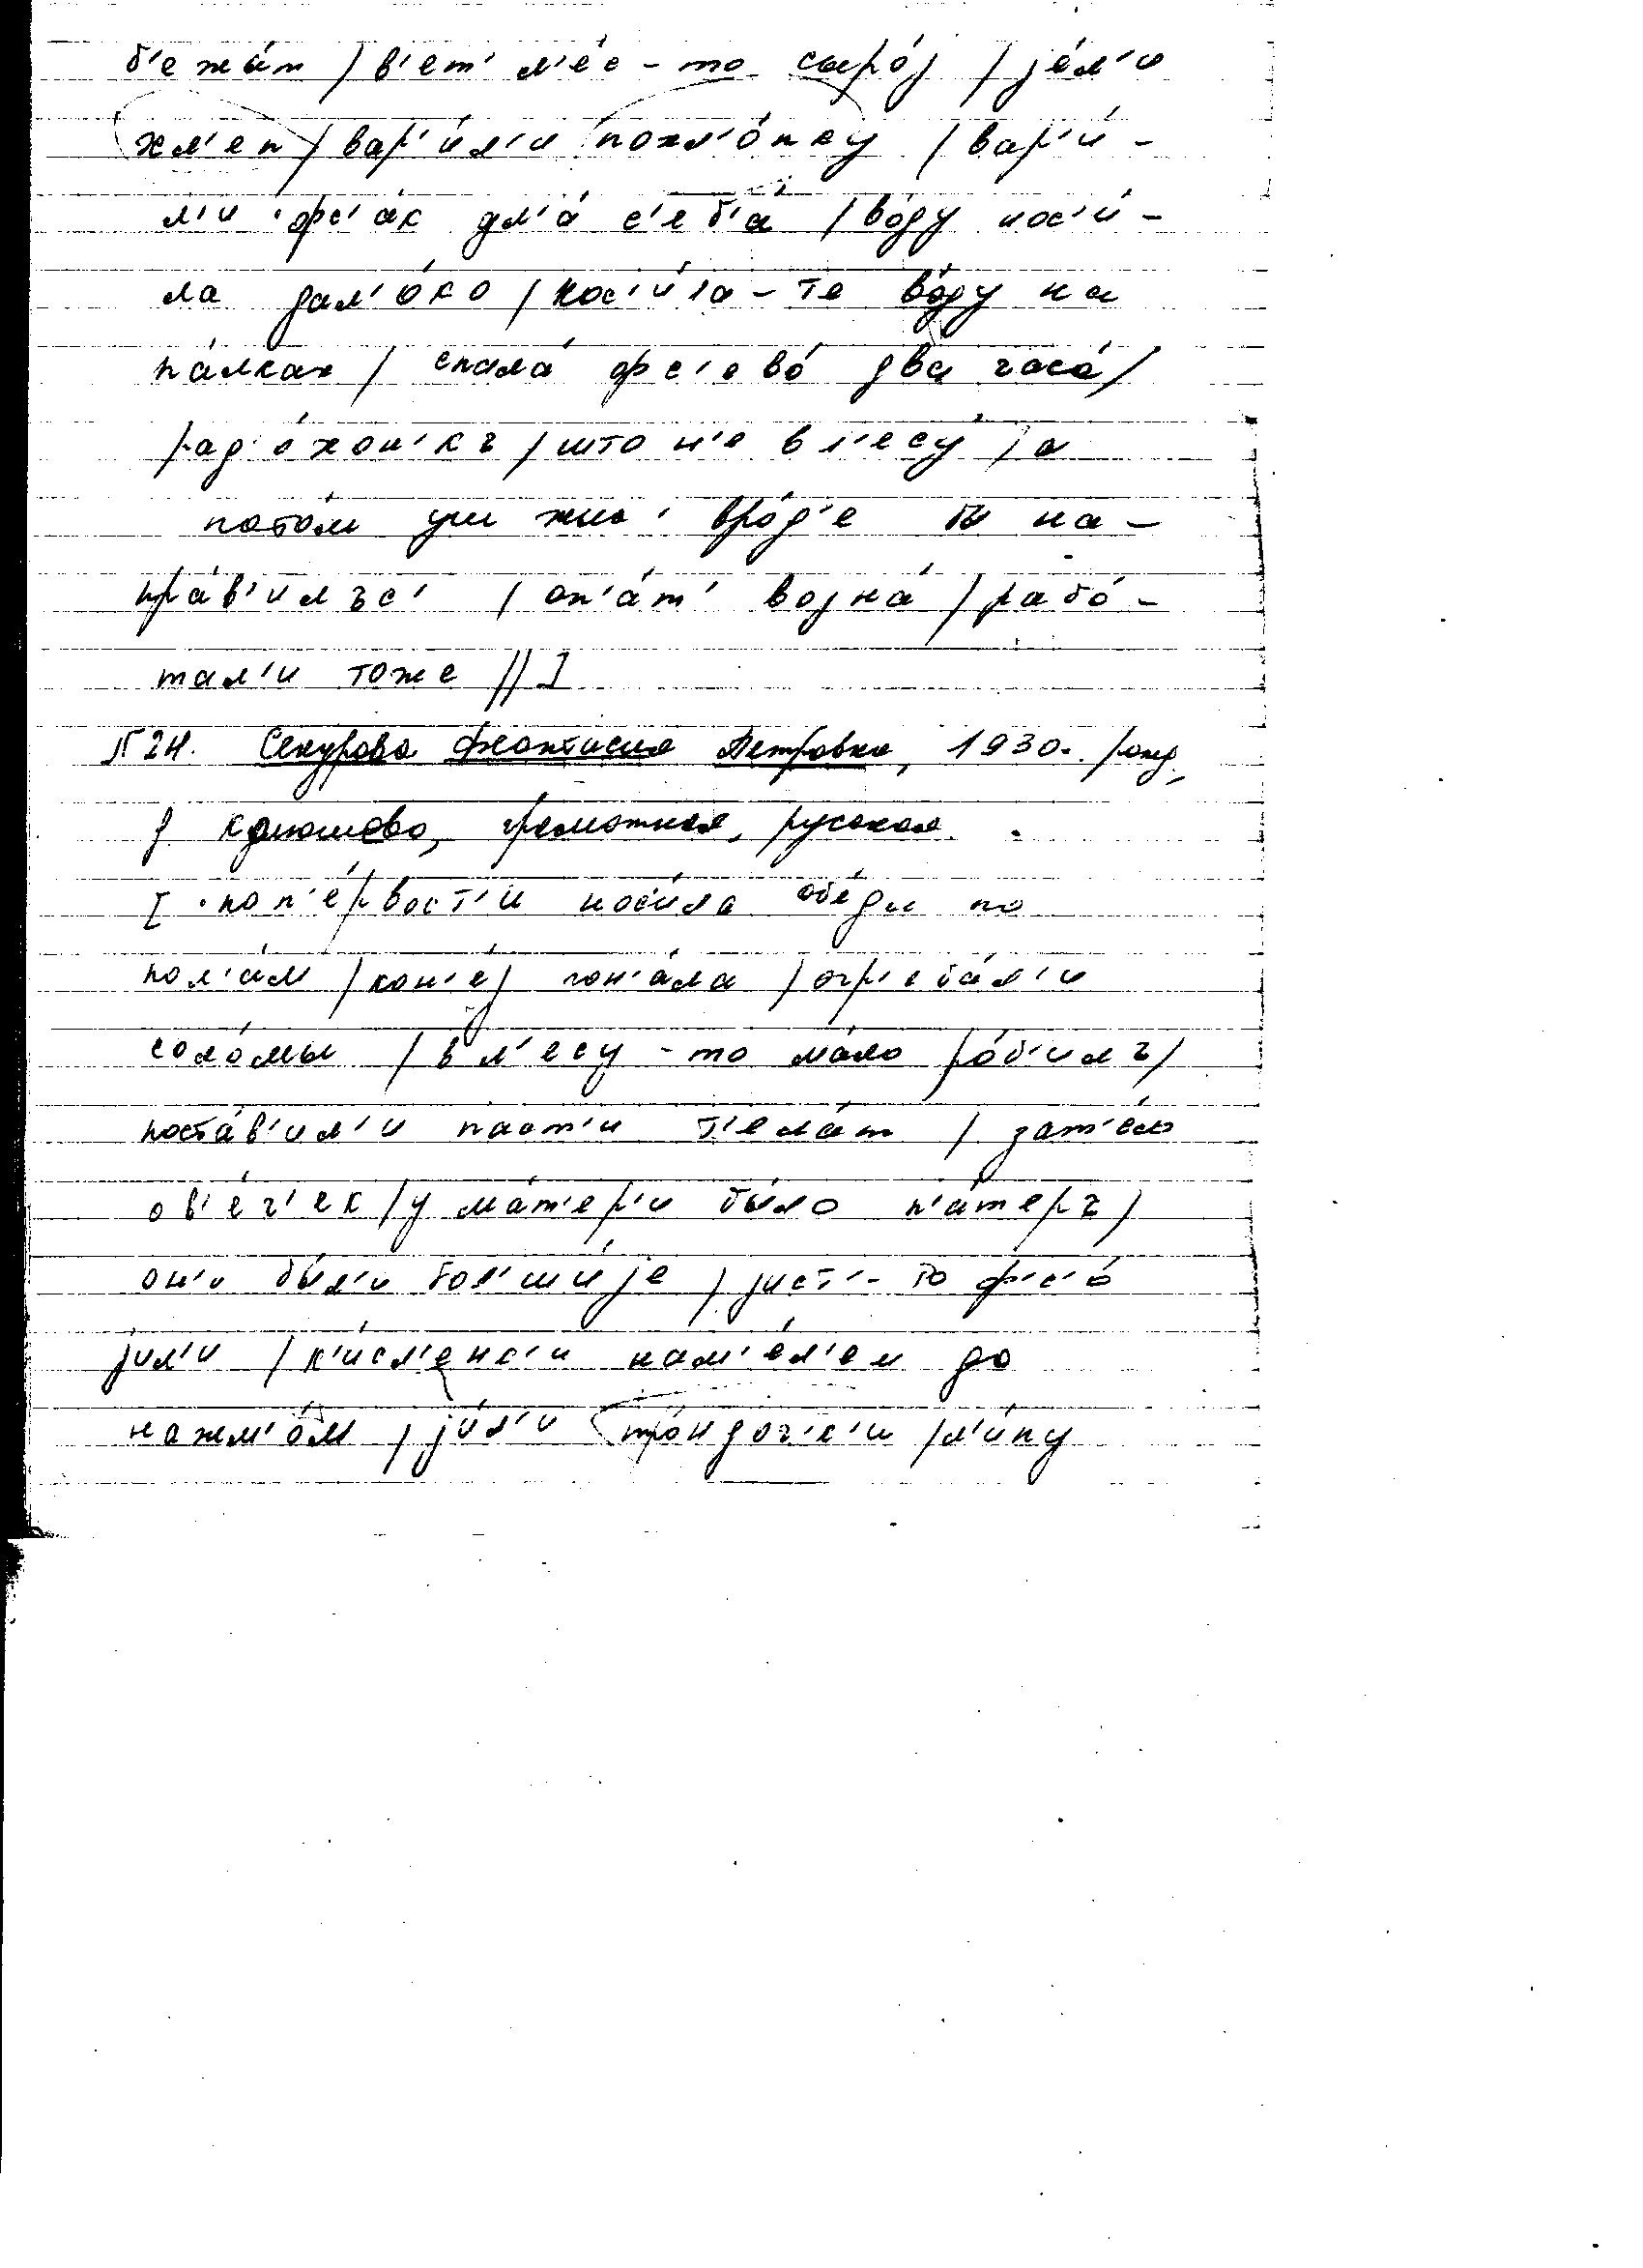 б'ежы́т / в'ет' л'е́с-то сыро́j / jе́л'и
хл'еп / вар'и́л'и похл'о́пку / вар'и́-
л'и фс'а́к дл'а́ с'еб'а́ / во́ду нос'и́-
ла дал'око / нос'и́ла-те во́ду на
па́лках / спала́ фс'ево́ два часа́ /
рад'о́хон'къ / што н'е в л'есу́ / а
пото́м уш жыс' вро́д'е бы на-
пра́в'илъс' / оп'а́т' воjна́ / рабо́-
тал'и тоже //]
№24. Секурова Феоктисия Петровна, 1930г. рожд.,
д. Конюшево, грамотная, русская.
[поп'е́рвост'и носи́ла обе́ды по
пол'а́м / кон'е́j гон'а́ла / огр'еба́л'и
соло́мы / в л'есу-то ма́ло ро́б'илъ /
поста́в'ил'и паст'и т'ел'а́т / зат'е́м
ов'е́ч'ек / у ма́т'ер'и бы́ло п'а́теръ /
он'и бы́л'и бол'шы́jе / jист'-то фс'о́
jил'и / к'исл'енс'и нам'е́л'ем до
нажм'о́м / jи́л'и тро́ндоч'к'и / л'и́пу